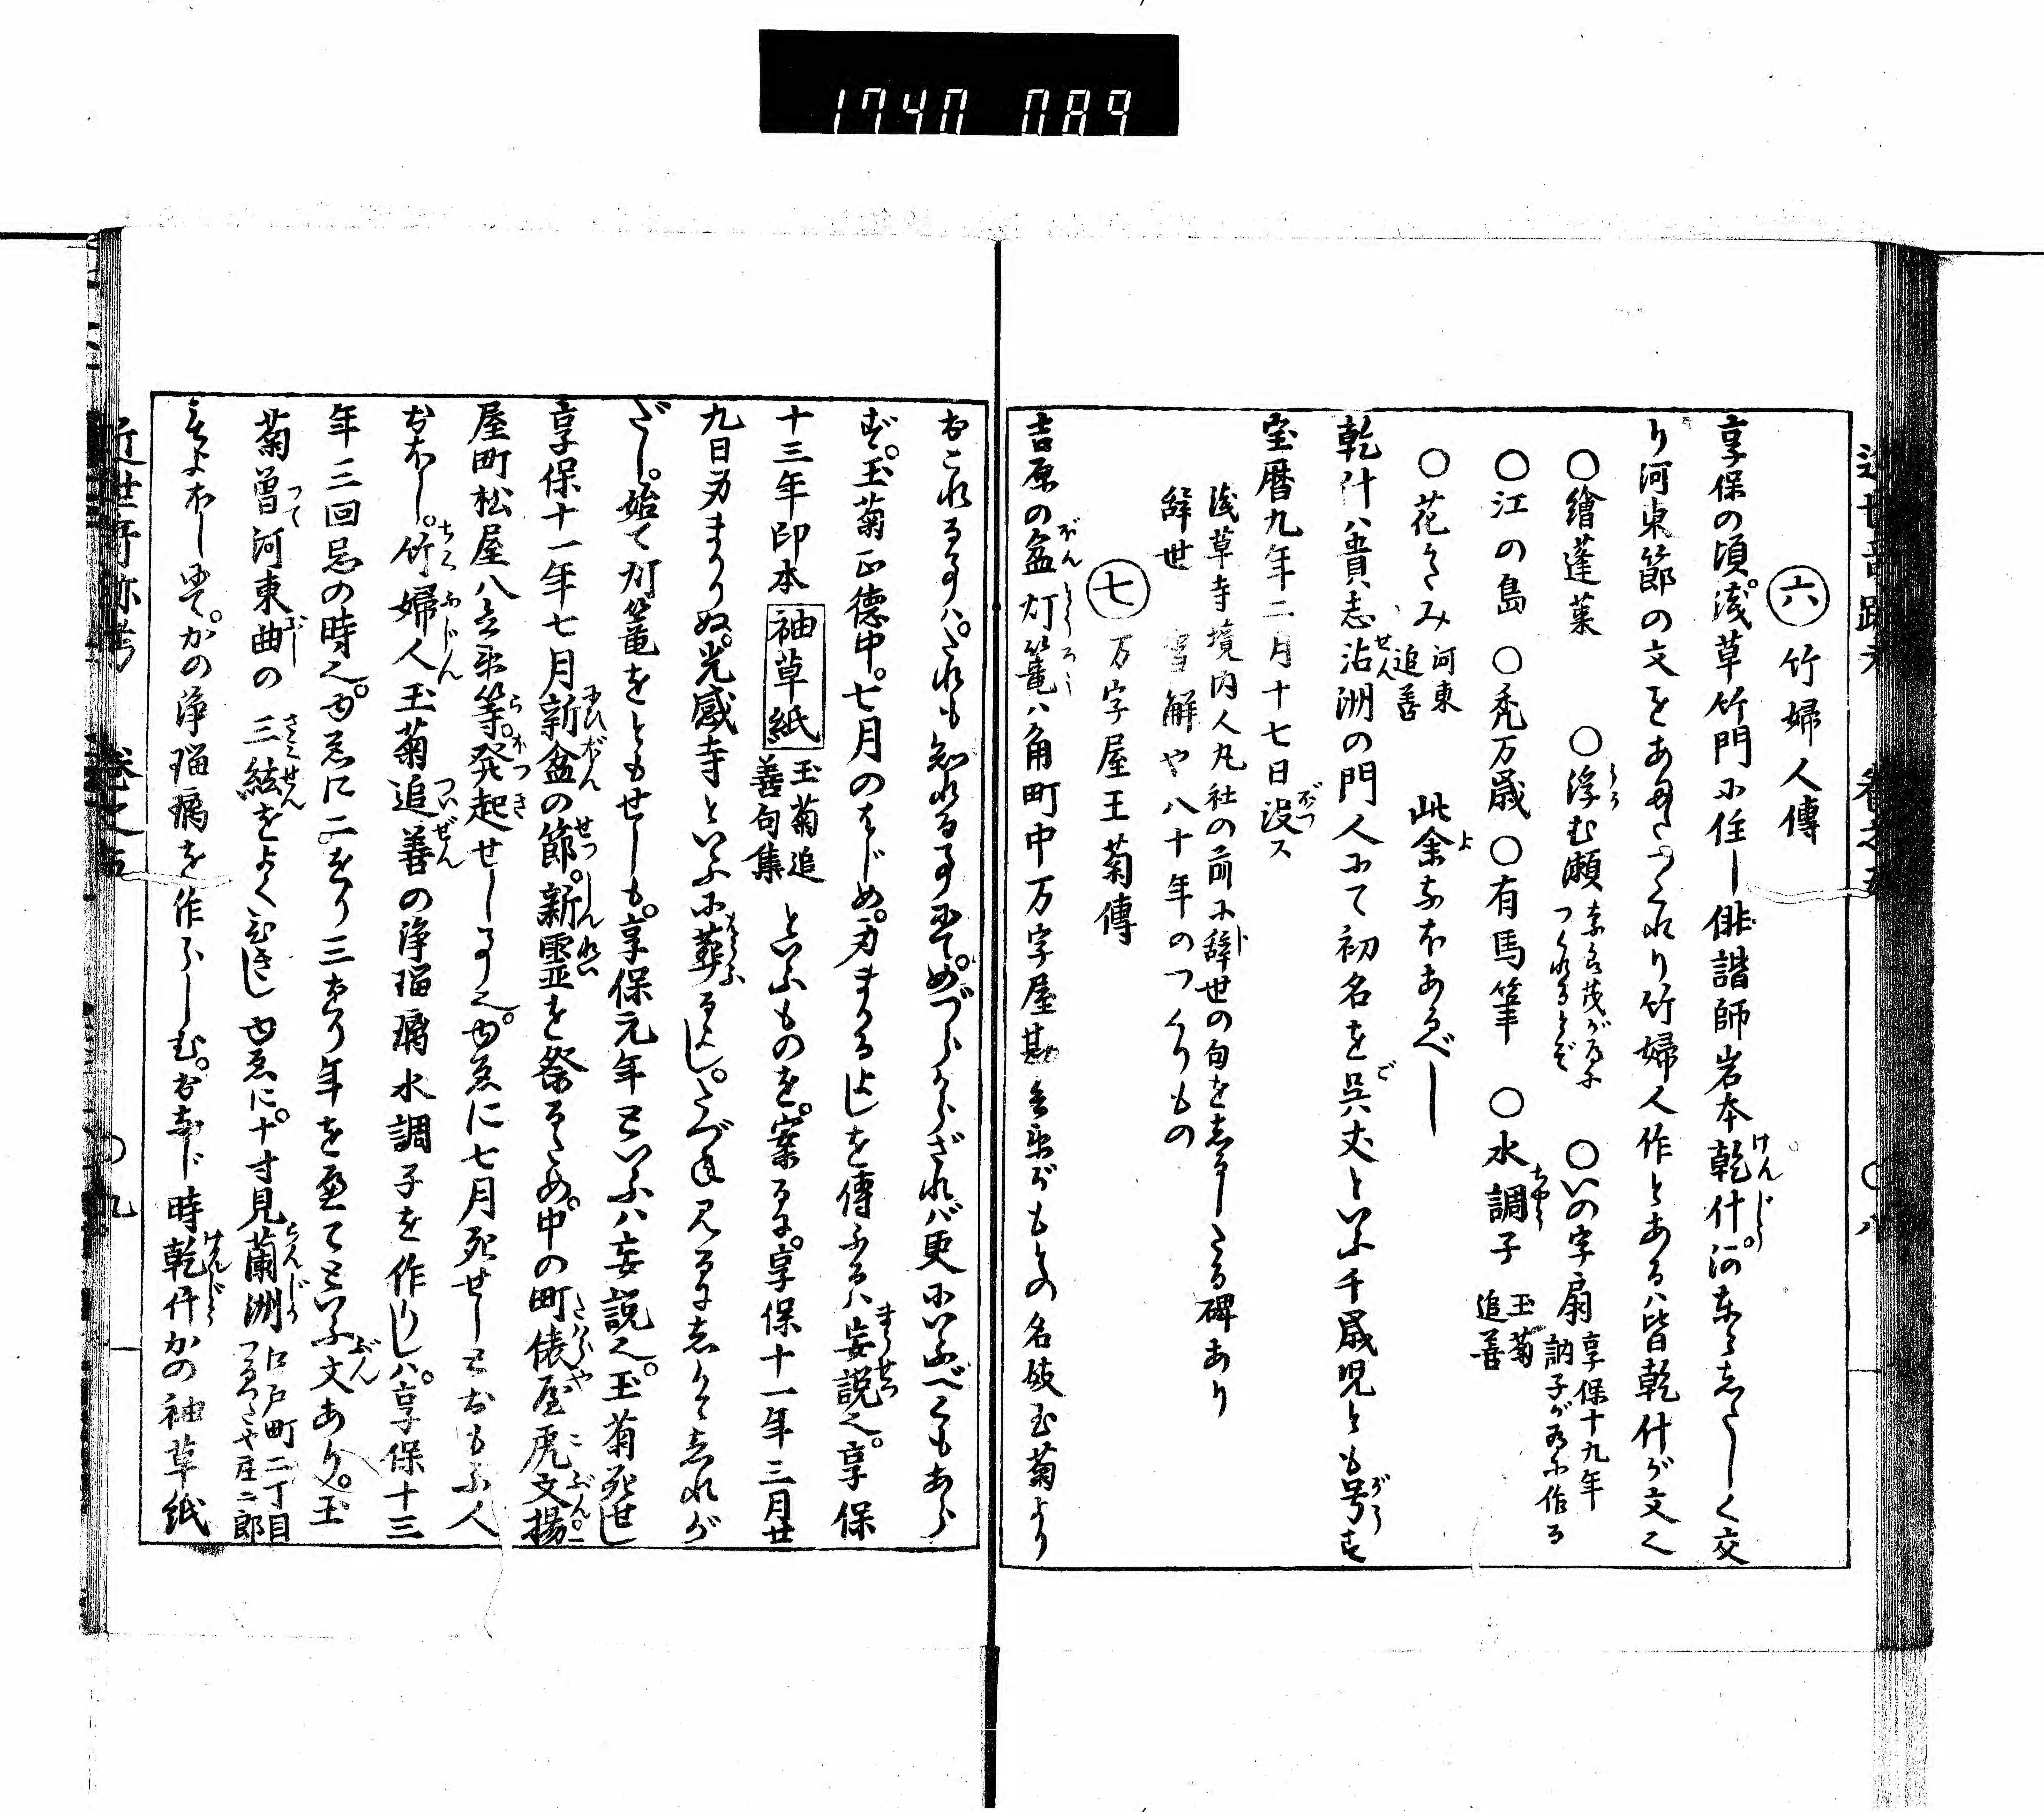 1740 089
㊅ 竹婦人傳
享保の頃。浅草竹門に住し俳諧師岩本乾什。河東としたしく交
り河東節の文をあまたつくれり竹婦人作とあるハ皆乾什が文也
〇繪蓬莱 〇浮む瀬 〇いの字扇 享保十九年訥子が為に作る
〇江の島 〇禿万歳 〇有馬筆 〇水調子 玉菊追善
〇花がたみ 河東追善 此余なほあるべし
乾什ハ貴志沾洲の門人にて初名を呉丈といふ千歳児とも号す
宝暦九年二月十七日没ス
浅草寺境内人丸社の前に辞世の句をしるしたる碑あり
辞世 雪解や八十年のつくりもの
㊆ 万字屋玉菊傳
吉原の盆灯篭ハ角町中万字屋勘兵衛がもとの名妓玉菊より
おこれる事ハ。たれも知れる事にて。めづらしからざれバ更にいふべくもあら
ず。玉菊正徳中。七月のはじめ。身まかるよしを傳ふるハ妄説也。享保
十三年印本 袖草紙 玉菊追善句集 といふものを。案るに。享保十一年三月廿
九日身まかりぬ。光感寺といふに葬るよし。たづね見るにしかとしれが
たし。始て灯篭をともせしも。享保元年といふハ妄説也。玉菊死せし
享保十一年七月新盆の節。新霊を祭るため。中の町俵屋虎文揚
屋町松屋八兵衛等。発起せし事也。ゆゑに七月死せしとおもふ人
おほし。竹婦人玉菊追善の浄瑠璃水調子を作りしハ。享保十三
年三回忌の時也。ゆゑに二をり三をり年を重てといふ文あり。玉
菊曽て河東曲の三絃をよくひきし ゆゑに。十寸見蘭洲 江戸町二丁目つるつたや庄二郎
きよほしにて。かの浄瑠璃を作らしむ。おなじ時乾什かの袖草紙
近世奇跡考 巻之五 〇九